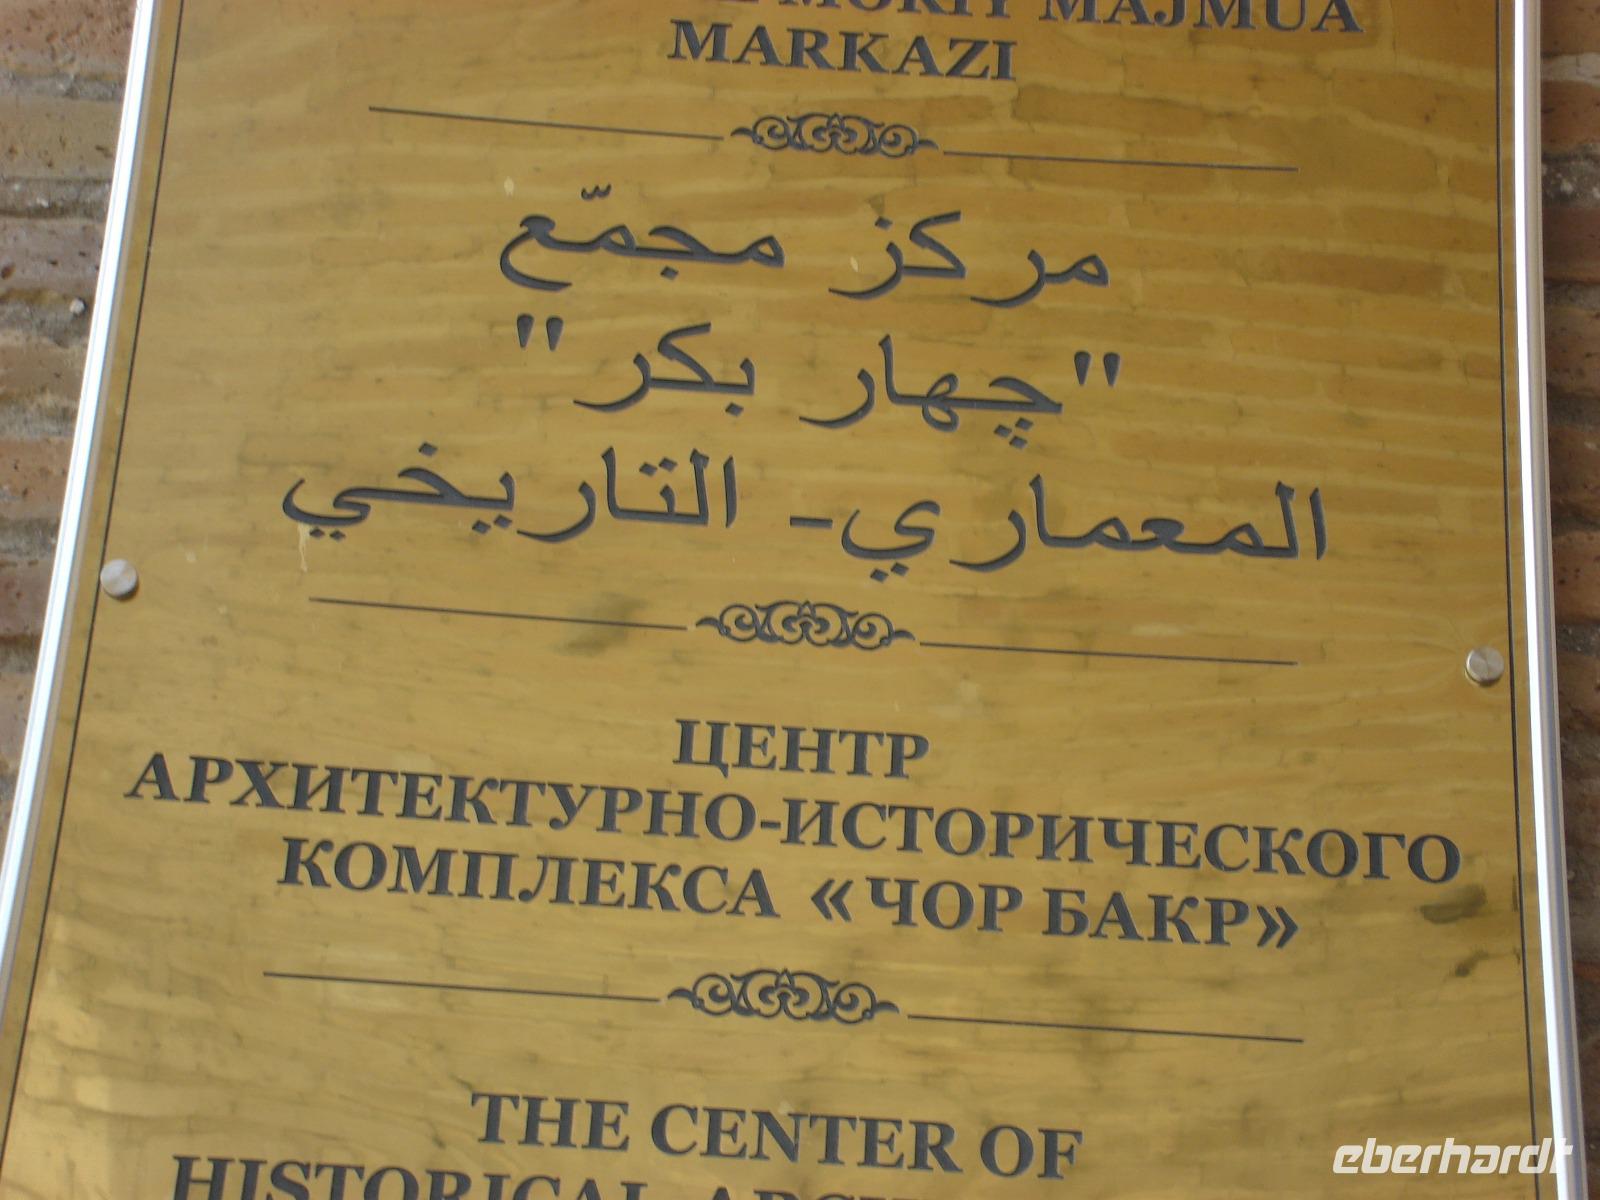 MAJMUA
MARKAZI
مركز مجمّع
"چهار بكر"
المعماري- التاريخي
ЦЕНТР
АРХИТЕКТУРНО-ИСТОРИЧЕСКОГО
КОМПЛЕКСА «ЧОР БАКР»
THE CENTER OF
HISTORICAL
eberhardt